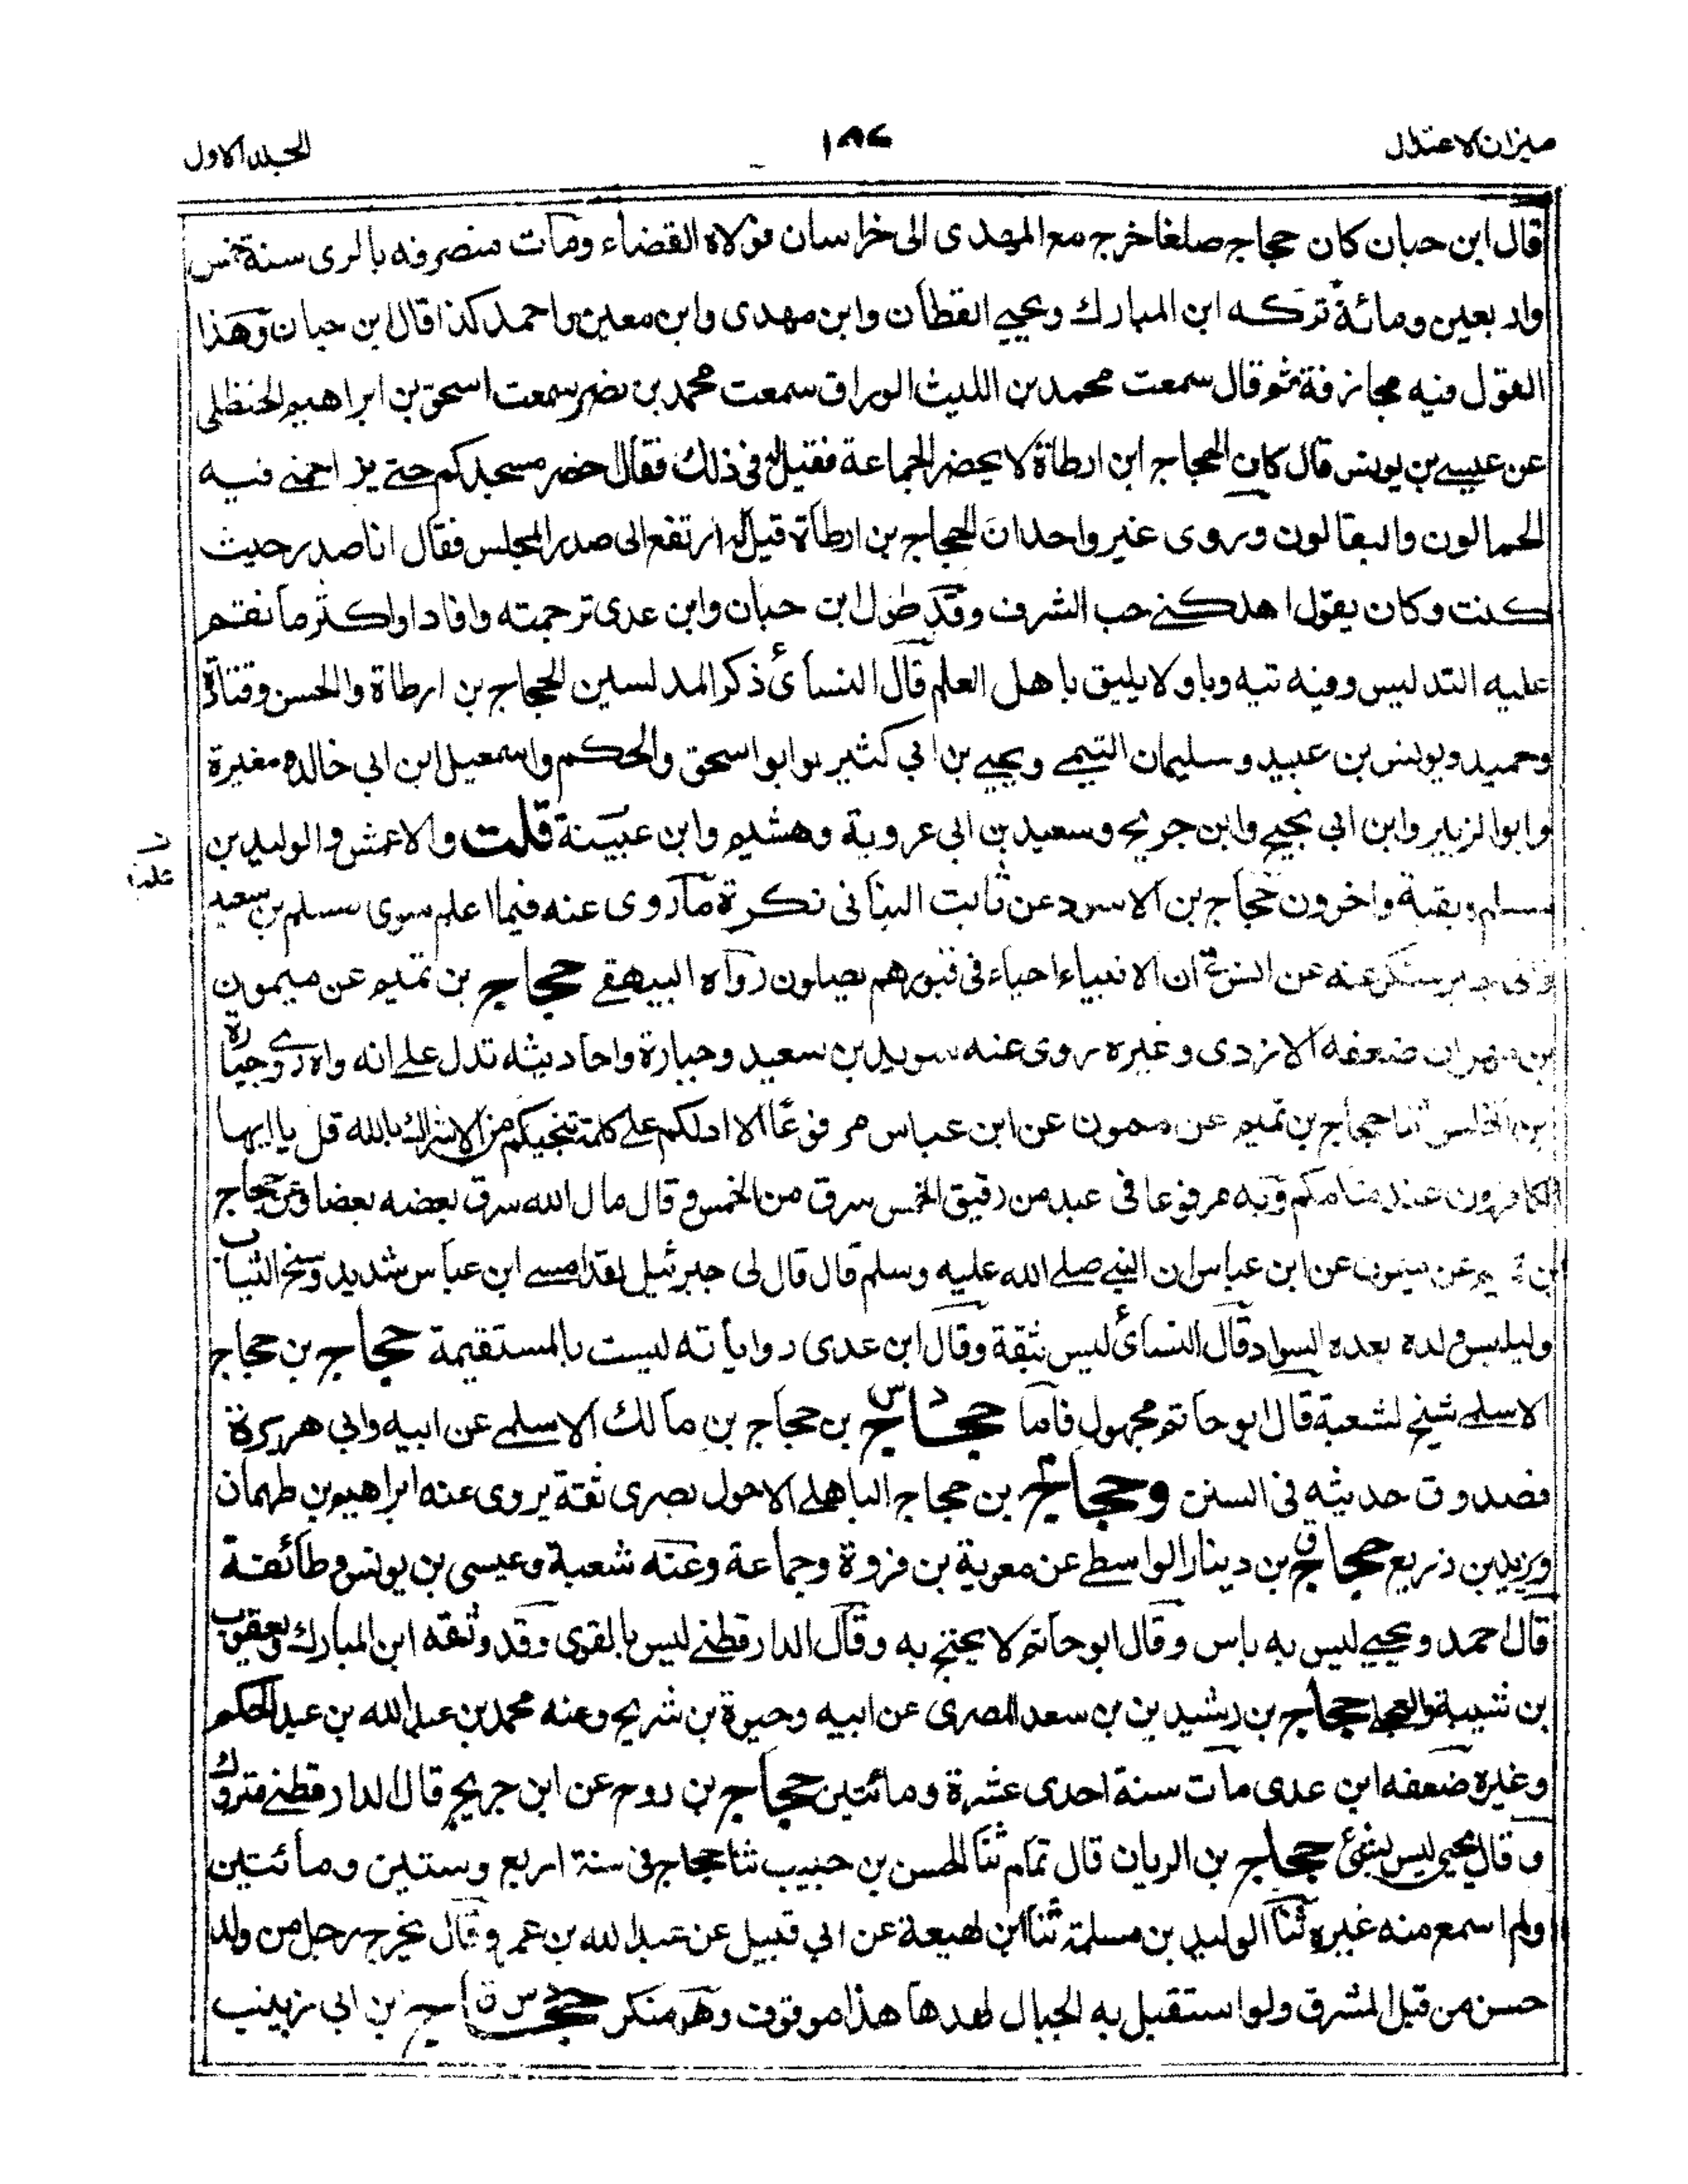 ميزان الاعتدال
١٨٧
الجلد الاول
قال ابن حبان كان حجاج صلغا خرج مع المهدى الى خراسان فولاه القضاء ومات منصرفه بالرى سنة خمس
واربعين ومائة تركه ابن المبارك ويحيى القطان وابن مهدى وابن معين واحمد كذا قال ابن حبان وهذا
القول فيه مجازفة ثم قال سمعت محمد بن الليث الوراق سمعت محمد بن نصر سمعت اسحق بن ابراهيم الحنظلى
عن عيسى بن يونس قال كان الحجاج ابن ارطاة لا يحضر الجماعة فقيل له فى ذلك فقال احضر مسجدكم حتى يزاحمنى فيه
الحمالون والبقالون وروى غير واحد ان الحجاج بن ارطاة قيل له ارتفع الى صدر المجلس فقال انا صدر حيث
كنت وكان يقول اهلكنى حب الشرف وقد طول ابن حبان وابن عدى ترجمته وافادا واكثر ما نقم
عليه التدليس وفيه تيه وباو لا يليق باهل العلم قال النسائ ذكر المدلسين الحجاج بن ارطاة والحسن وقتادة
وحميد ويونس بن عبيد وسليمان التيمى ويحيى بن ابى كثير وابو اسحق والحكم واسمعيل ابن ابى خالد ومغيرة
وابو الزبير وابن ابى نجيح وابن جريج وسعيد بن ابى عروبة وهشيم وابن عيينة قلت والاعمش والوليد بن
مسلم وبقية واخرون حجاج بن الاسود عن ثابت البنانى نكرة ما روى عنه فيما اعلم سوى مسلم بن سعيد
فاتى بخبر منكر عنه عن انس ان الانبياء احياء فى قبورهم يصلون رواه البيهقى حجاج بن تميم عن ميمون
بن مهران ضعفه الازدى وغيره روى عنه سويد بن سعيد وجبارة واحاديثه تدل على انه واه روى جبارة
بن المغلس ثنا حجاج بن تميم عن ميمون عن ابن عباس مرفوعا الا ادلكم على كلمة تنجيكم من الاشراك بالله قل يا ايها
الكافرون عند منامكم وبه مرفوعا فى عبد من رقيق الخمس سرق من الخمس وقال مال الله سرق بعضه بعضا وعن حجاج
بن تميم عن ميمون عن ابن عباس ان النبى صلى الله عليه وسلم قال قال لى جبرئيل لقد امسى ابن عباس شديد وسخ الثياب
وليلبس ولده بعده السواد قال النسائ ليس بثقة وقال ابن عدى رواياته ليست بالمستقيمة حجاج بن حجاج
الاسلمى شيخ لشعبة قال ابو حاتم مجهول فاما حجاج د س بن حجاج بن مالك الاسلمى عن ابيه وابى هريرة
فصدوق حديثه فى السنن وحجاج بن حجاج الباهلى الاحول بصرى ثقة يروى عنه ابراهيم بن طهمان
ويزيد بن زريع حجاج ق بن دينار الواسطى عن معوية بن قروة وجماعة وعنه شعبة وعيسى بن يونس وطائفة
قال احمد ويحيى ليس به باس وقال ابو حاتم لا يحتج به وقال الدارقطنى ليس بالقوى وقد وثقه ابن المبارك ويعقوب
بن شيبة والعجلى حجاج بن رشيد بن بن سعد المصرى عن ابيه وحيوة بن شريح وعنه محمد بن عبد الله بن عبد الحكم
وغيره ضعفه ابن عدى مات سنة احدى عشرة ومائتين حجاج بن روح عن ابن جريج قال الدارقطنى متروك
وقال يحيى ليس بشئ حجاج بن الريان قال تمام ثنا الحسن بن حبيب ثنا حجاج فى سنة اربع وستين ومائتين
ولم اسمع منه غيره ثنا الوليد بن مسلمة ثنا ابن لهيعة عن ابى قبيل عن عبد الله بن عمرو قال يخرج رجل من ولد
حسن من قبل المشرق ولو استقبل به الجبال لهدها هذا موقوف وهو منكر حجاج س ق بن ابى زينب